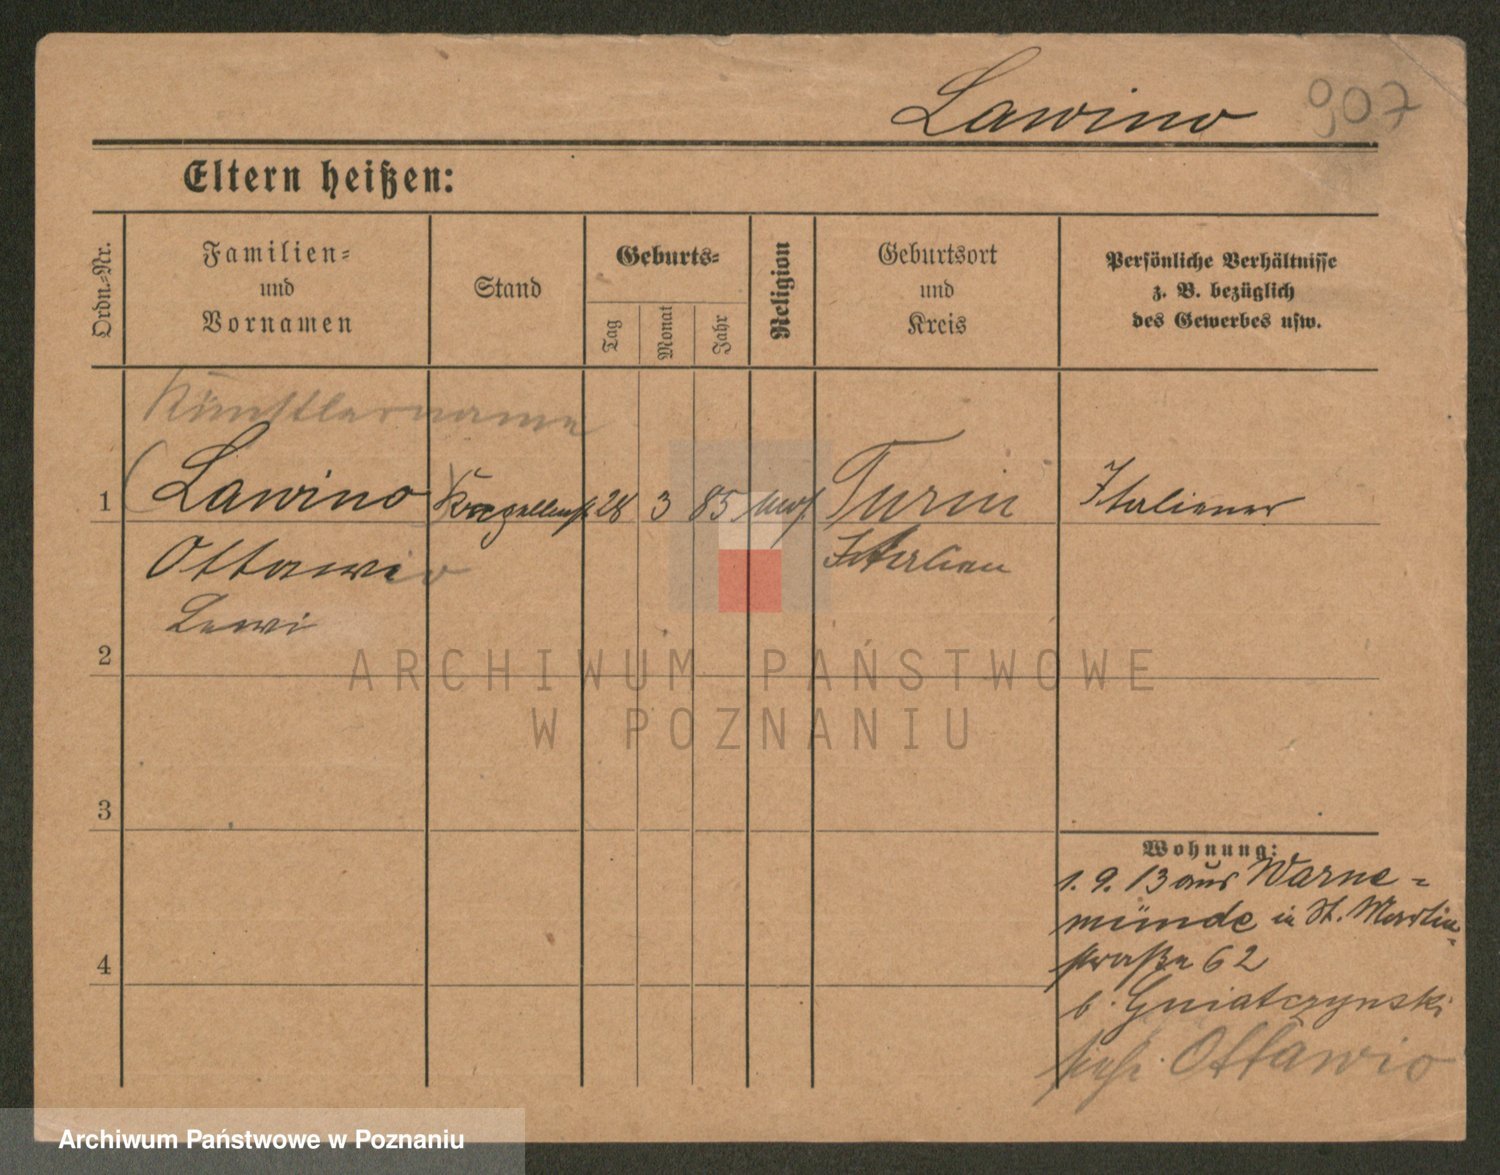 Lawino 907
Eltern heißen:
Ordn.-Nr.
Familien-
und
Vornamen
Stand
Geburts-
Tag
Monat
Jahr
Religion
Geburtsort
und
Kreis
Persönliche Verhältnisse
z. B. bezüglich
des Gewerbes usw.
Künstlername
1 (Lawino 28 3 85 Turin Italiener
Ottawio Italien
Lewi
2
3
4
Wohnung:
1. 9. 13 aus Warne-
münde in St. Martin-
straße 62
b. Gniatczynski
siehe Ottawio
ARCHIWUM PAŃSTWOWE
W POZNANIU
Archiwum Państwowe w Poznaniu